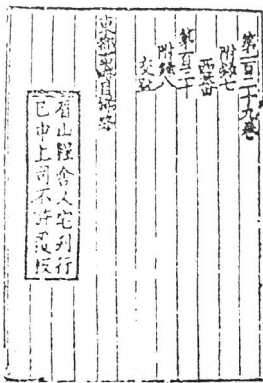 第一百二十九卷
附錄七
西夏
第一百三十
附錄八
交趾
東都事略目録終
眉山程舍人宅刊行
已申上司不許覆板